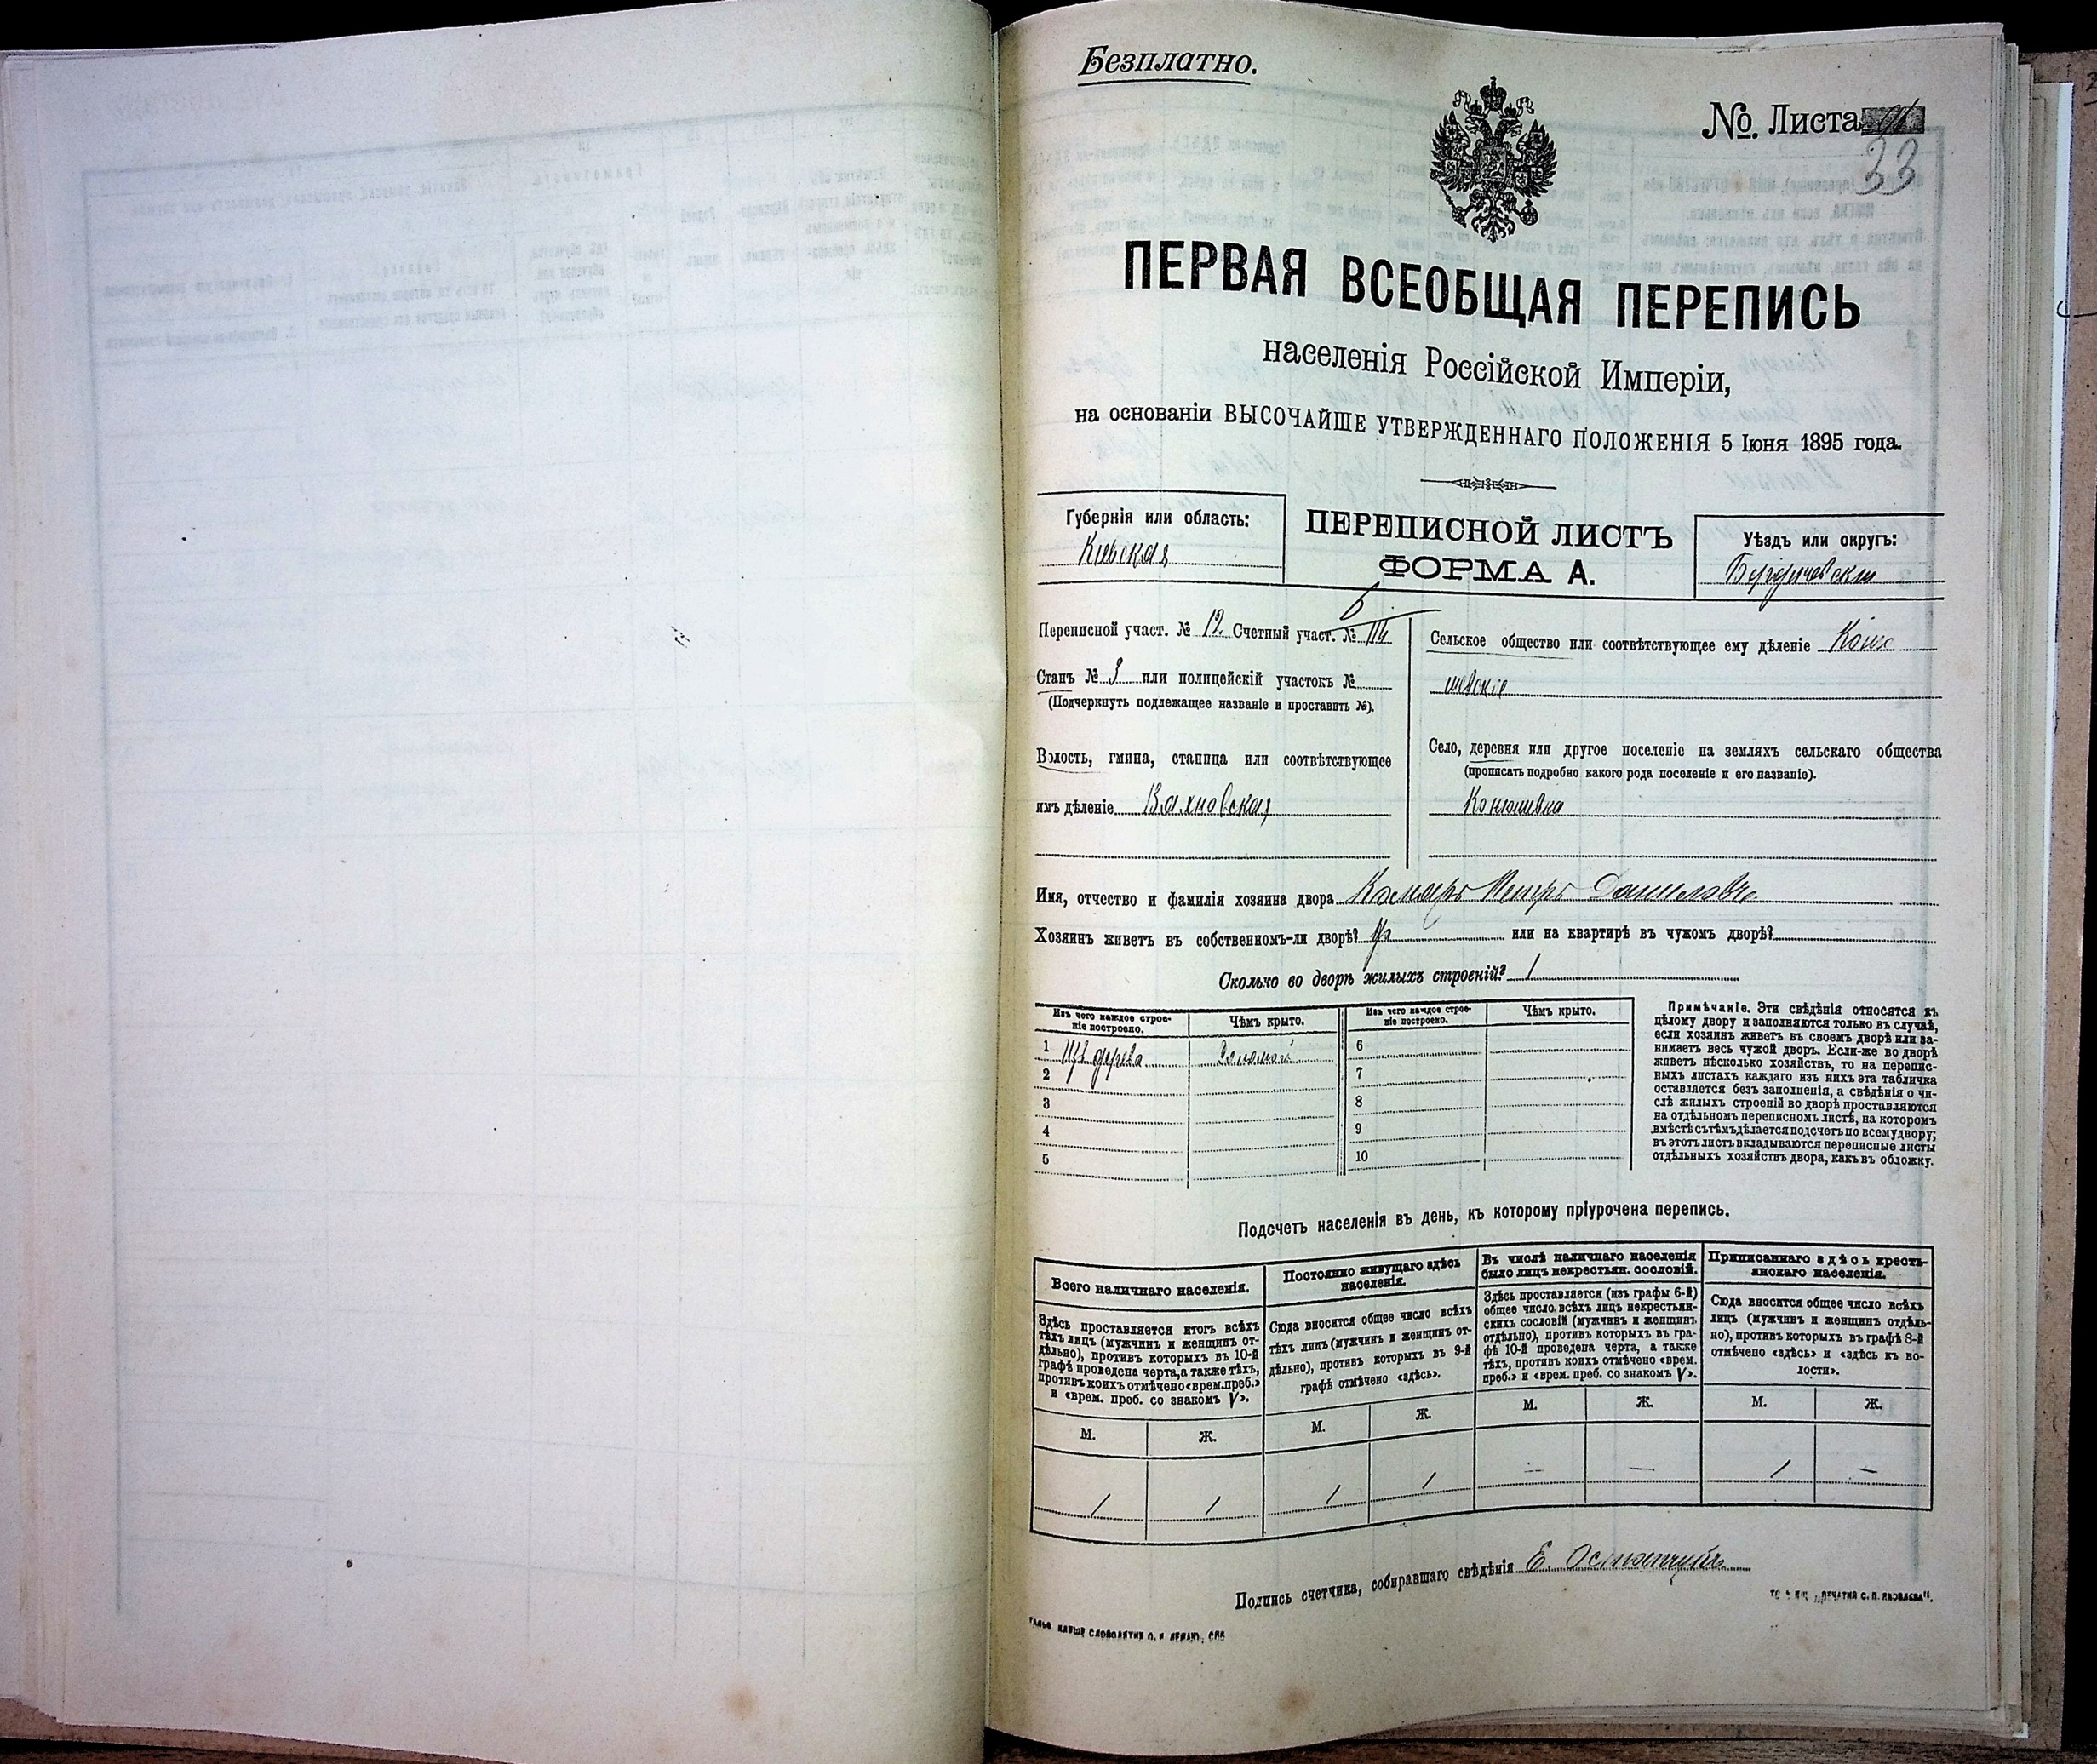 Безплатно.
№ Листа
33
ПЕРВАЯ ВСЕОБЩАЯ ПЕРЕПИСЬ
населенія Россійской Имперіи,
на основаніи ВЫСОЧАЙШЕ УТВЕРЖДЕННАГО ПОЛОЖЕНІЯ 5 Іюня 1895 года.
Губернія или область:
Кіевская
ПЕРЕПИСНОЙ ЛИСТЪ
ФОРМА А.
Уѣздъ или округъ:
Бердичевскій
Переписной участ. № 12 Счетный участ. №
Станъ № 3 или полицейскій участокъ №
(Подчеркнуть подлежащее названіе и проставить №).
Волость, гмина, станица или соотвѣтствующее
имъ дѣленіе Вахновская
Сельское общество или соотвѣтствующее ему дѣленіе
Село, деревня или другое поселеніе на земляхъ сельскаго общества
(прописать подробно какого рода поселеніе и его названіе).
Конюшевка
Имя, отчество и фамилія хозяина двора Комаръ Петръ Даниловъ
Хозяинъ живетъ въ собственномъ-ли дворѣ? или на квартирѣ въ чужомъ дворѣ?
Сколько во дворѣ жилыхъ строеній? 1
Изъ чего каждое строе-
ніе построено.
Чѣмъ крыто.
Изъ чего каждое строе-
ніе построено.
Чѣмъ крыто.
1 Изъ дерева Соломой 6
2 7
3 8
4 9
5 10
Примѣчаніе. Эти свѣдѣнія относятся къ
цѣлому двору и заполняются только въ случаѣ,
если хозяинъ живетъ въ своемъ дворѣ или за-
нимаетъ весь чужой дворъ. Если-же во дворѣ
живетъ нѣсколько хозяйствъ, то на перепис-
ныхъ листахъ каждаго изъ нихъ эта табличка
оставляется безъ заполненія, а свѣдѣнія о чи-
слѣ жилыхъ строеній во дворѣ проставляются
на отдѣльномъ переписномъ листѣ, на которомъ
вмѣстѣ съ тѣмъ дѣлается подсчетъ по всему двору;
въ этотъ листъ вкладываются переписные листы
отдѣльныхъ хозяйствъ двора, какъ въ обложку.
Подсчетъ населенія въ день, къ которому пріурочена перепись.
Всего наличнаго населенія.
Здѣсь проставляется итогъ всѣхъ
тѣхъ лицъ (мужчинъ и женщинъ от-
дѣльно), противъ которыхъ въ 10-й
графѣ проведена черта, а также тѣхъ,
противъ коихъ отмѣчено «врем. преб.»
и «врем. преб. со знакомъ V».
М. Ж.
1 1
Постоянно живущаго здѣсь
населенія.
Сюда вносится общее число всѣхъ
тѣхъ лицъ (мужчинъ и женщинъ от-
дѣльно), противъ которыхъ въ 9-й
графѣ отмѣчено «здѣсь».
М. Ж.
1 1
Въ числѣ наличнаго населенія
было лицъ некрестьян. сословій.
Здѣсь проставляется (изъ графы 6-й)
общее число всѣхъ лицъ некрестьян-
скихъ сословій (мужчинъ и женщинъ
отдѣльно), противъ которыхъ въ гра-
фѣ 10-й проведена черта, а также
тѣхъ, противъ коихъ отмѣчено «врем.
преб.» и «врем. преб. со знакомъ V».
М. Ж.
— —
Приписаннаго здѣсь кресть-
янскаго населенія.
Сюда вносится общее число всѣхъ
лицъ (мужчинъ и женщинъ отдѣль-
но), противъ которыхъ въ графѣ 8-й
отмѣчено «здѣсь» и «здѣсь къ во-
лости».
М. Ж.
1 —
Подпись счетчика, собиравшаго свѣдѣнія Е.